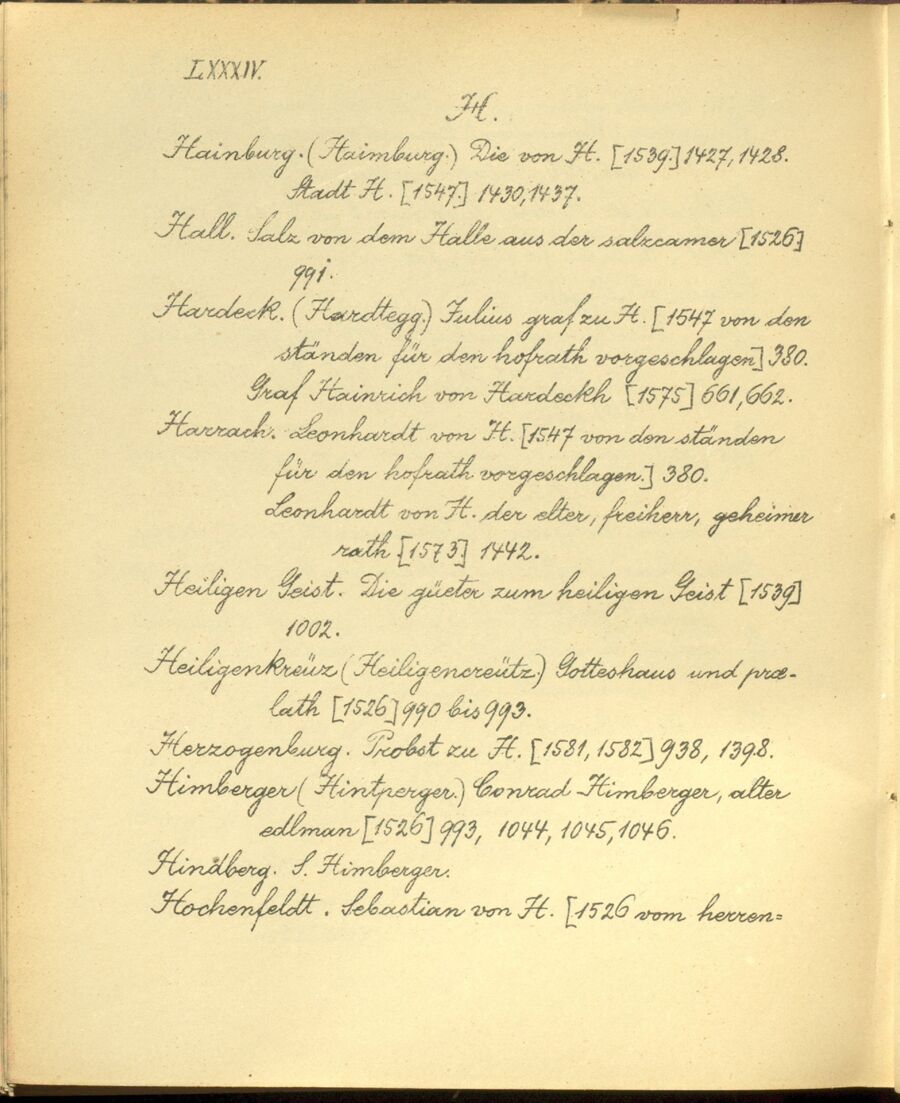 LXXXIV.
H.
Hainburg. (Haimburg.) Die von H. [1539.] 1427, 1428.
Stadt H. [1547.] 1430, 1437.
Hall. Salz von dem Halle aus der salzcamer [1526]
991.
Hardeck. (Hardtegg.) Julius graf zu H. [1547 von den
ständen für den hofrath vorgeschlagen] 380.
Graf Hainrich von Hardeckh [1575] 661, 662.
Harrach. Leonhardt von H. [1547 von den ständen
für den hofrath vorgeschlagen.] 380.
Leonhardt von H. der elter, freiherr, geheimer
rath [1573] 1442.
Heiligen Geist. Die güeter zum heiligen Geist [1539]
1002.
Heiligenkreüz (Heiligencreütz.) Gotteshaus und præ-
lath [1526] 990 bis 993.
Herzogenburg. Probst zu H. [1581, 1582] 938, 1398.
Himberger (Hintperger.) Conrad Himberger, alter
edlman [1526] 993, 1044, 1045, 1046.
Hindberg. S. Himberger.
Hochenfeldt. Sebastian von H. [1526 vom herren=